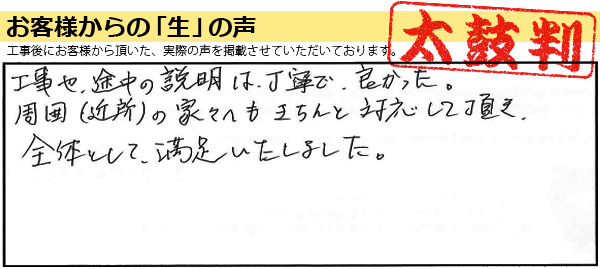 お客様からの「生」の声
工事後にお客様から頂いた、実際の声を掲載させていただいております。
太鼓判
工事や、途中の説明は、丁寧で、良かった。
周囲(近所)の家々へもきちんと対応して頂き、
全体として、満足いたしました。